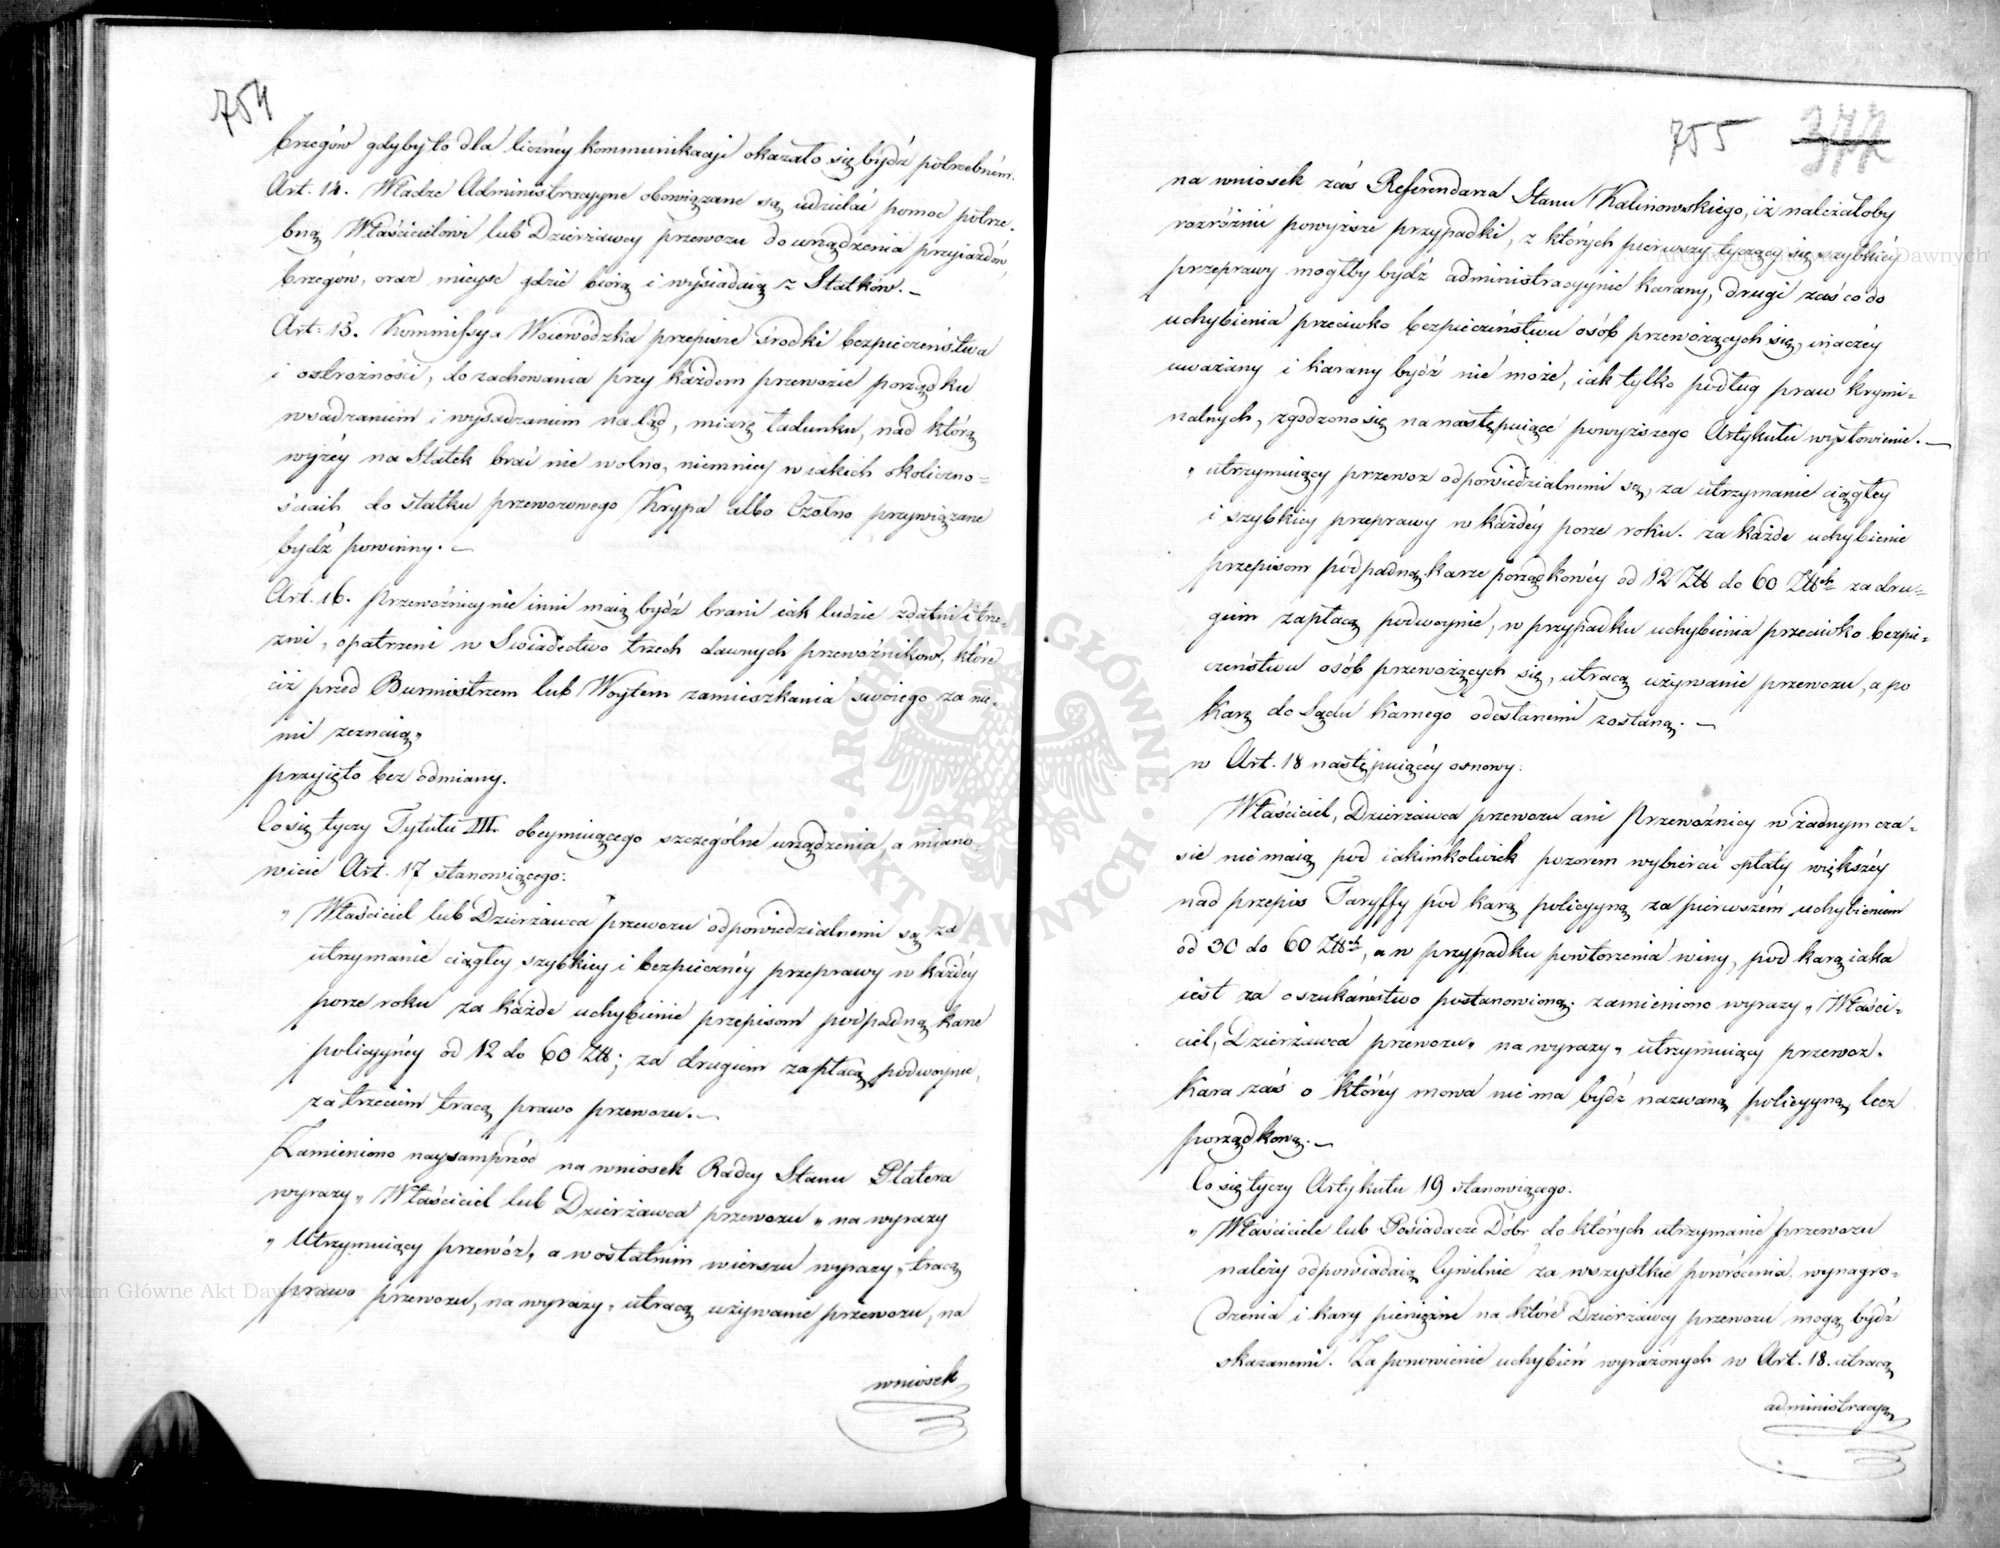 754
brzegów gdyby to dla liczney kommunikacyi okazało się bydź potrzebném.
Art. 14. Władze Administracyyne obowiązane są udzielać pomoc potrze-
bną Właścicielowi lub Dzierżawcy przewozu do urządzenia przyiazdów,
brzegów, oraz mieysc gdzie biorą i wysiadaią z Statków. –
Art. 15. Kommissya Woiewódzka przepisze środki bezpieczeństwa
i ostrożności, do zachowania przy każdem przewozie porządku
wsadzaniem i wysadzaniem na ląd, miarę ładunku, nad którą
wyżéy na Statek brać nie wolno, niemniey w iakich okoliczno=
ściach do statku przewozowego Krypa albo Czółno przywiązane
bydź powinny. –
Art. 16. Przewoźnicy nie inni maią bydź brani iak ludzie zdatni i trze-
zwi, opatrzeni w Swiadectwo trzech dawnych przewoźników, które
ciż przed Burmistrzem lub Woytem zamieszkania swoiego za nie-
mi zeznaią„
przyięto bez odmiany.
Co się tyczy Tytułu III. obeymuiącego szczególne urządzenia, a miano-
wicie Art. 17 stanowiącego:
„Właściciel lub Dzierżawca przewozu odpowiedzialnemi są za
utrzymanie ciągłey szybkiey i bezpiecznéy przeprawy w każdéy
porze roku za każde uchybienie przepisom podpadną karze
policyynéy od 12 do 60 Złł; za drugiem zapłacą podwoynie,
za trzeciem tracą prawo przewozu. –
Zamieniono naysamprzód na wniosek Radcy Stanu Platera
wyrazy „Właściciel lub Dzierżawca przewozu„ na wyrazy
„Utrzymuiący przewóz„ a w ostatnim wierszu wyrazy „tracą
prawo przewozu, na wyrazy „utracą używanie przewozu, na
wniosek
755 377
na wniosek zaś Referendarza Stanu Kalinowskiego, iż należałoby
rozróżnić powyższe przypadki, z których pierwszy tyczący się szybkiéy
przeprawy mogłby bydź administracyynie karany, drugi zaś co do
uchybienia przeciwko bezpieczeństwu osób przewożących się, inaczéy
uważany i karany bydź nie może, iak tylko podług praw krymi=
nalnych, zgodzono się na następuiące powyższego Artykułu wysłowienie. –
„utrzymuiący przewoz odpowiedzialnemi są, za utrzymanie ciągłey
i szybkiey przeprawy w każdéy porze roku. za każde uchybienie
przepisom podpadną karze porządkowéy od 12 Złł do 60 Złłch za dru=
giem zapłacą podwoynie, w przypadku uchybienia przeciwko bezpie-
czeństwu osób przewożących się, utracą używanie przewozu, a po
karę do Sądu karnego odesłanemi zostaną. –
w Art. 18 następuiącéy osnowy:
Właściciel, Dzierżawca przewozu ani Przewoźnicy w żadnym cza-
sie nie maią pod iakimkolwiek pozorem wybierać opłaty większéy
nad przepis Taryffy pod karą policyyną za pierwszém uchybieniem
od 30 do 60 Złłch, a w przypadku powtorzenia winy, pod karą iaka
iest za oszukaństwo postanowioną; zamieniono wyrazy „Właści-
ciel, Dzierżawca przewozu„ na wyrazy „utrzymuiący przewoz„
Kara zaś o któréy mowa nie ma bydź nazwaną policyyną, lecz
porządkową. –
Co się tyczy Artykułu 19 stanowiącego:
„Właściciele lub Posiadacze Dóbr do których utrzymanie przewozu
należy odpowiadaią Cywilnie za wszystkie powrócenia, wynagro-
dzenia i kary pieniężne na które Dzierżawcy przewozu mogą bydź
skazanemi. Za ponowienie uchybień wyrażonych w Art. 18. utracą
administracyą
ARCHIWUM GŁÓWNE AKT DAWNYCH
Archiwum Główne Akt Dawnych
Archiwum Główne Akt Dawnych